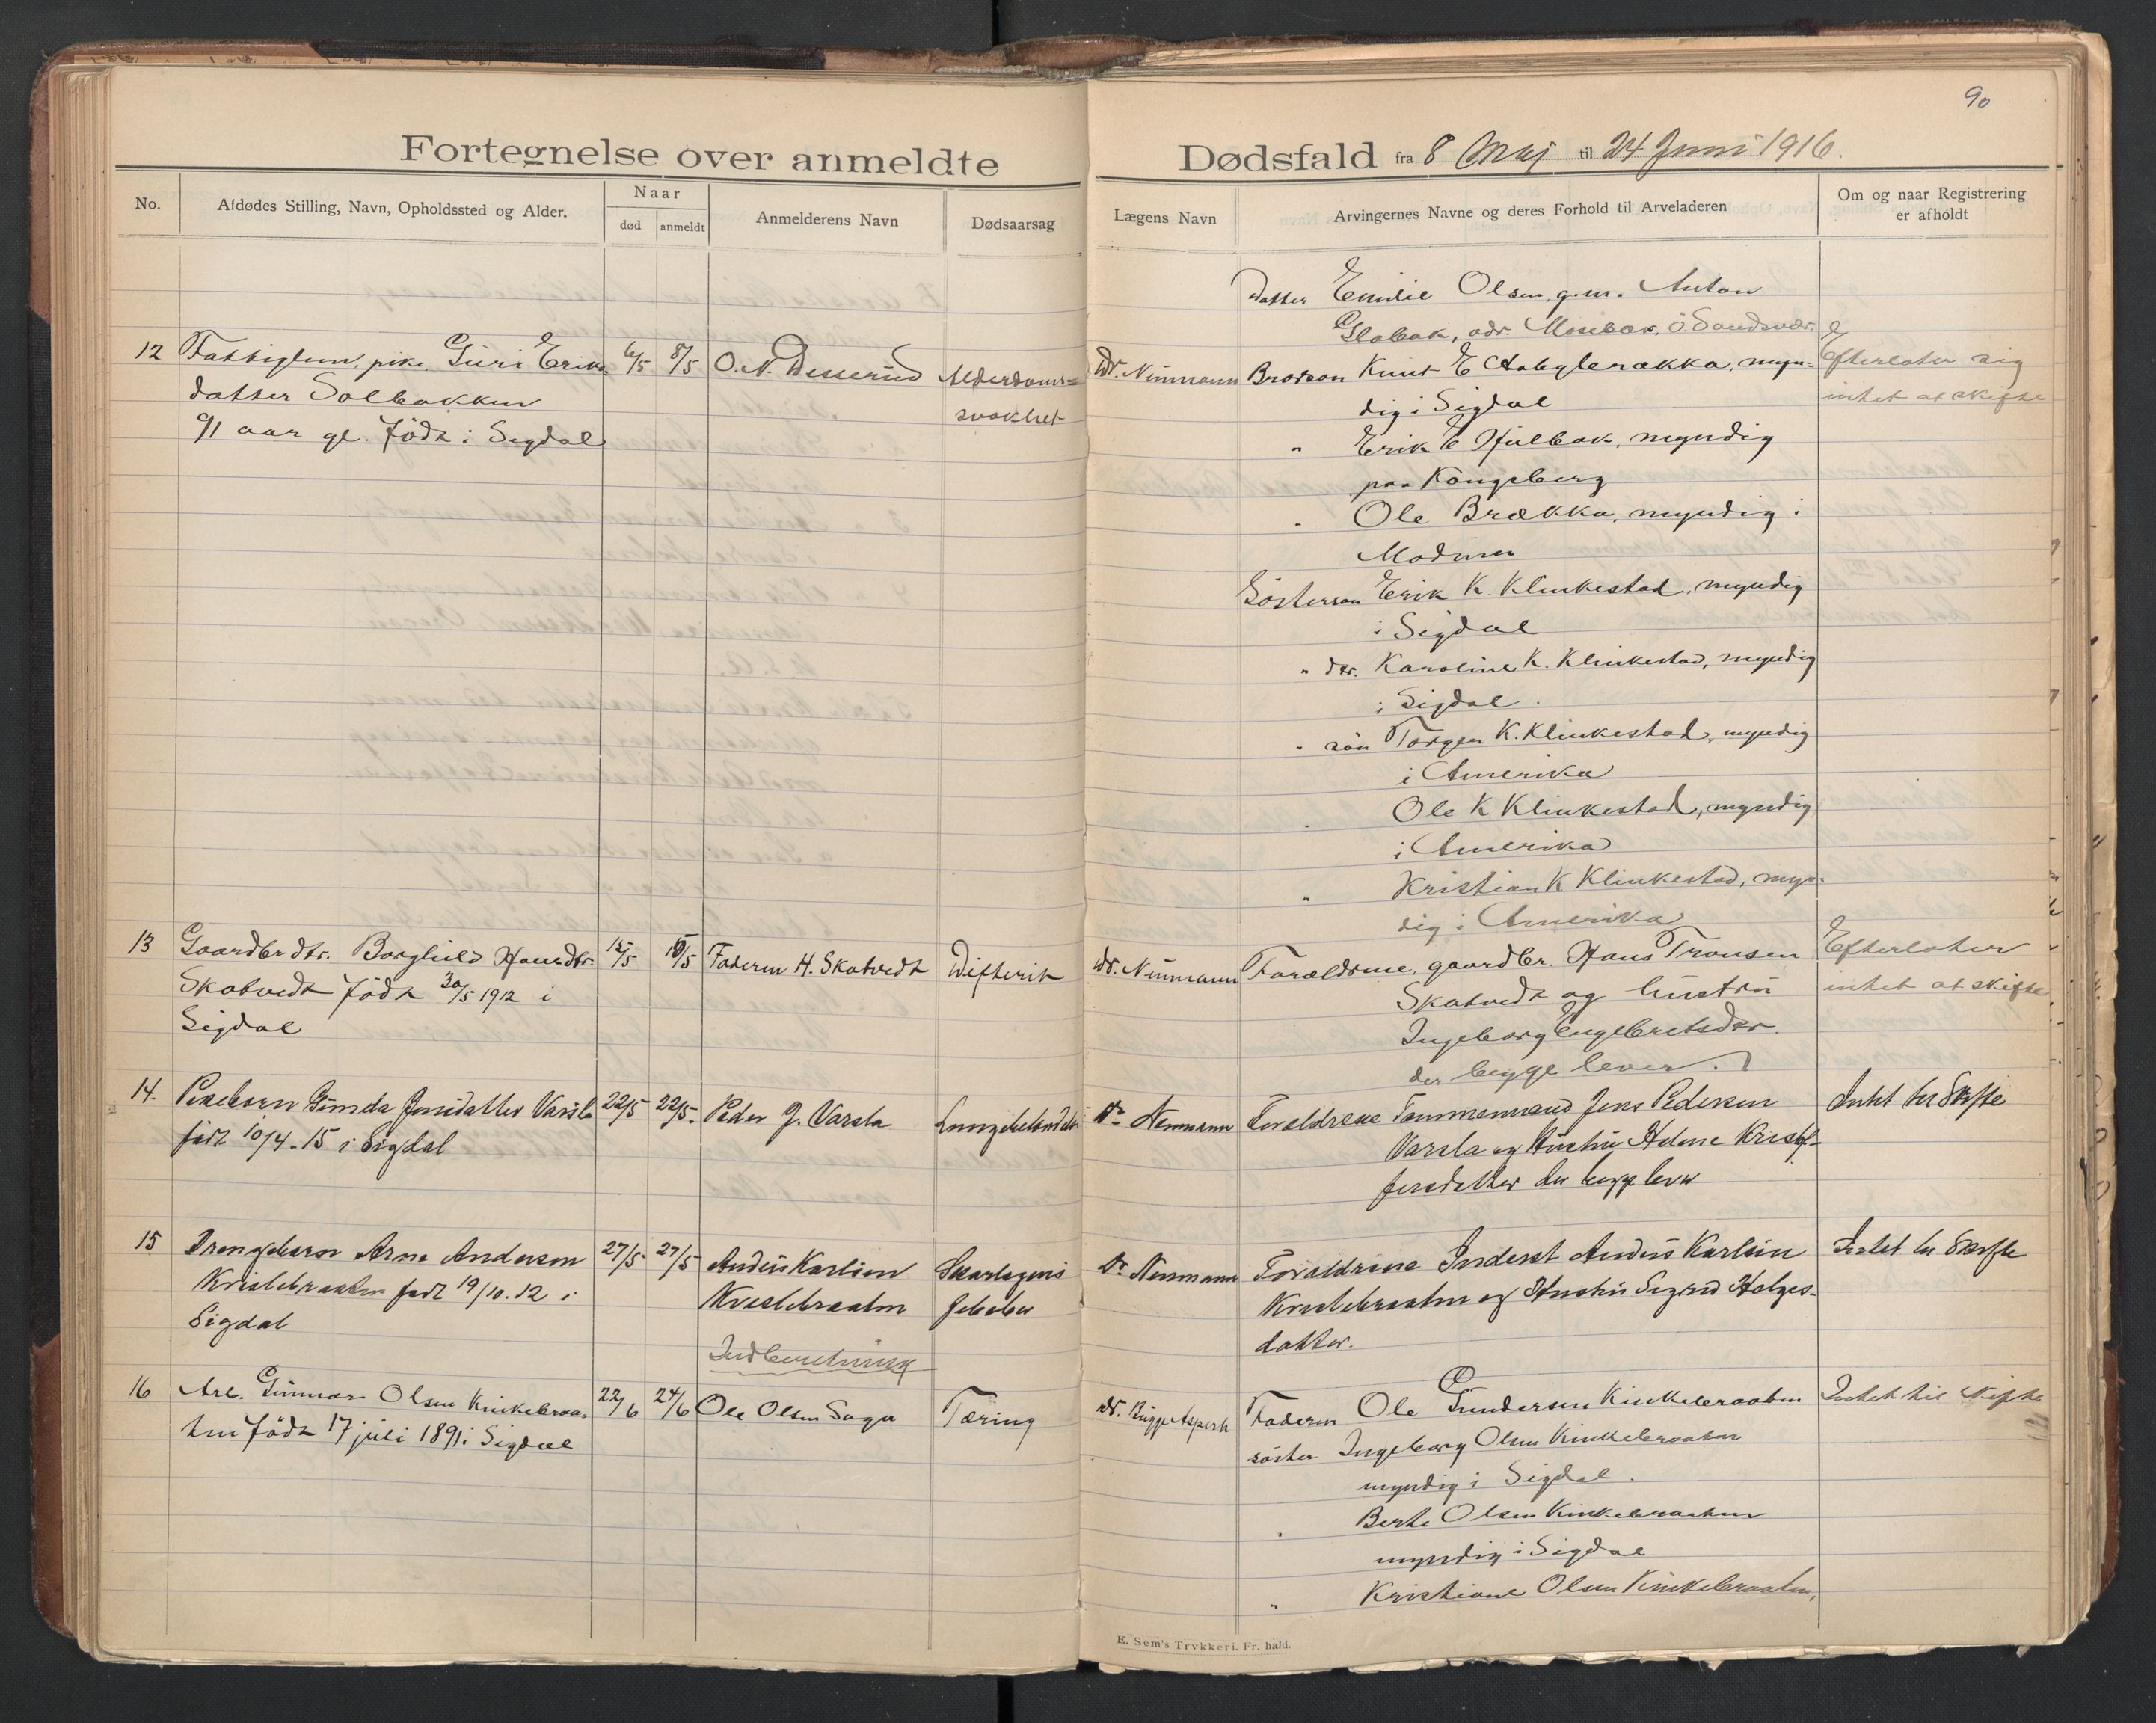 90
Fortegnelse over anmeldte Dødsfald fra 8 Maj til 24 Juni 1916.
No.
Afdødes Stilling, Navn, Opholdssted og Alder.
Naar
død
anmeldt
Anmelderens Navn
Dødsaarsag
Lægens Navn
Arvingernes Navne og deres Forhold til Arveladeren
Om og naar Registrering
er afholdt
Datter Emilie Olsen, g.m. Anton
Glabak, adr. Mosebak, Ö. Sandsvær.
12 Fattiglem, pike Guri Eriks
datter Solbakken
91 aar gl. Född i Sigdal
6/5 8/5 O. N. Desserud
Alderdoms-
svakhet
Dr. Neumann
Brorson Knut E. Habylerækka, myn-
dig i Sigdal
" Erik E Hulbak, myndig
paa Kongsberg
" Ole Brækka, myndig i
Modum
Sösterson Erik K. Klinkestad, myndig
i Sigdal
" dtr. Karoline K. Klinkestad, myndig
i Sigdal.
" sön Torger K. Klinkestad, myndig
i Amerika
" Ole K Klinkestad, myndig
i Amerika
" Kristian K Klinkestad, myn-
dig i Amerika
Efterlater sig
intet at skifte
13 Gaardbr dtr. Borghild Hansdtr.
Skatvedt född 30/5 1912 i
Sigdal
15/5 18/5 Faderen H. Skatvedt
Difterit
Dr. Neumann
Forældrene, gaardbr. Hans Tronsen
Skatvedt og hustru
Ingeborg Engebretsdtr.
der begge lever.
Efterlater
intet at skifte
14. Pikebarn Gunda Jensdatter Varsla
född 10/4-15 i Sigdal
22/5 22/5. Peder J. Varsla
Lungebetændelse
Dr Neumann
Forældrene Tømmermand Jens Pedersen
Varsla og Hustru Helene Kristof-
fersdatter der begge lever
Intet til Skifte
15 Drengebarn Arne Andersen
Kristebraaten født 19/10.12 i
Sigdal
27/5 27/5 Anders Karlsen
Kristebraaten
Skarlagens
feber
Dr Neumann
Forældrene Inderst Anders Karlsen
Kristebraaten og Hustru Sigrid Helges-
datter.
Intet til Skifte
Indberetning
16 Arb. Gunnar Olsen Kinkebraa-
ten född 17 juli 1891 i Sigdal
22/6 24/6 Ole Olsen Saga
Tæring
Dr. Bugge Asperh
Faderen Ole Gundersen Kinkebraaten
söster Ingeborg Olsen Kinkebraaten
myndig i Sigdal.
" Berte Olsen Kinkebraaten
myndig i Sigdal
" Kristiane Olsen Kinkebraaten,
Intet til skifte
E. Sem's Trykkeri. Fr. hald.